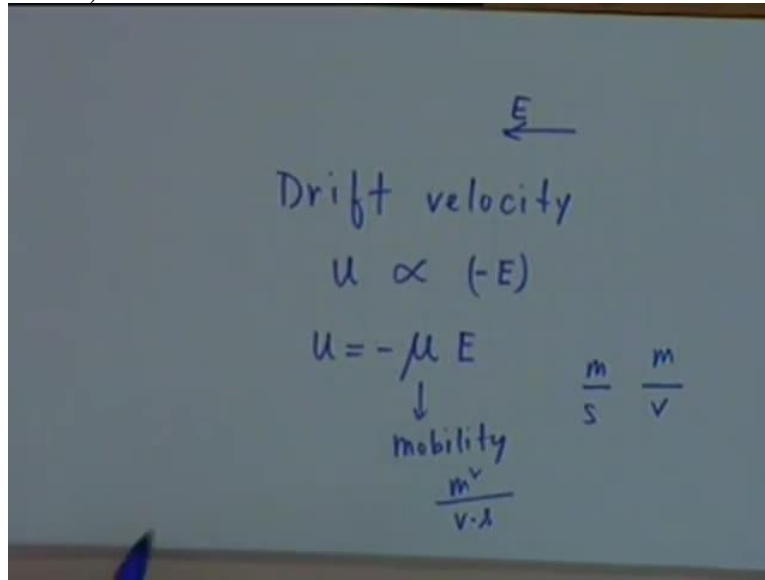 E
←
Drift velocity
u ∝ (-E)
u = - μ E
↓
m/s m/v
mobility
m²/v·s